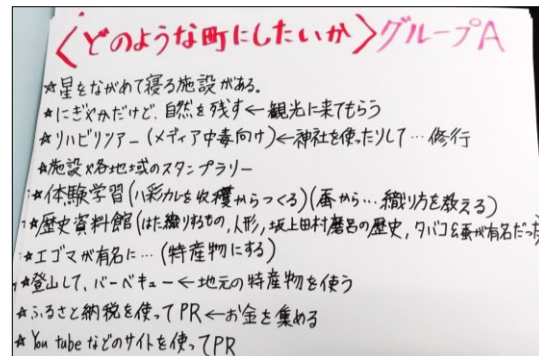 〈どのような町にしたいか〉グループA
☆星をながめて寝る施設がある。
☆にぎやかだけど、自然を残す←観光に来てもらう
☆リハビリツアー(メディア中毒向け)←神社を使ったりして…修行
☆施設×各地域のスタンプラリー
☆体験学習(八彩カレを収穫からつくる)(蚕から…織り方を教える)
☆歴史資料館(はた織りもの,人形,坂上田村麿呂の歴史,タバコ&蚕が有名だった
☆エゴマが有名に…(特産物にする)
☆登山して、バーベキュー←地元の特産物を使う
☆ふるさと納税を使ってPR←お金を集める
☆You tubeなどのサイトを使ってPR